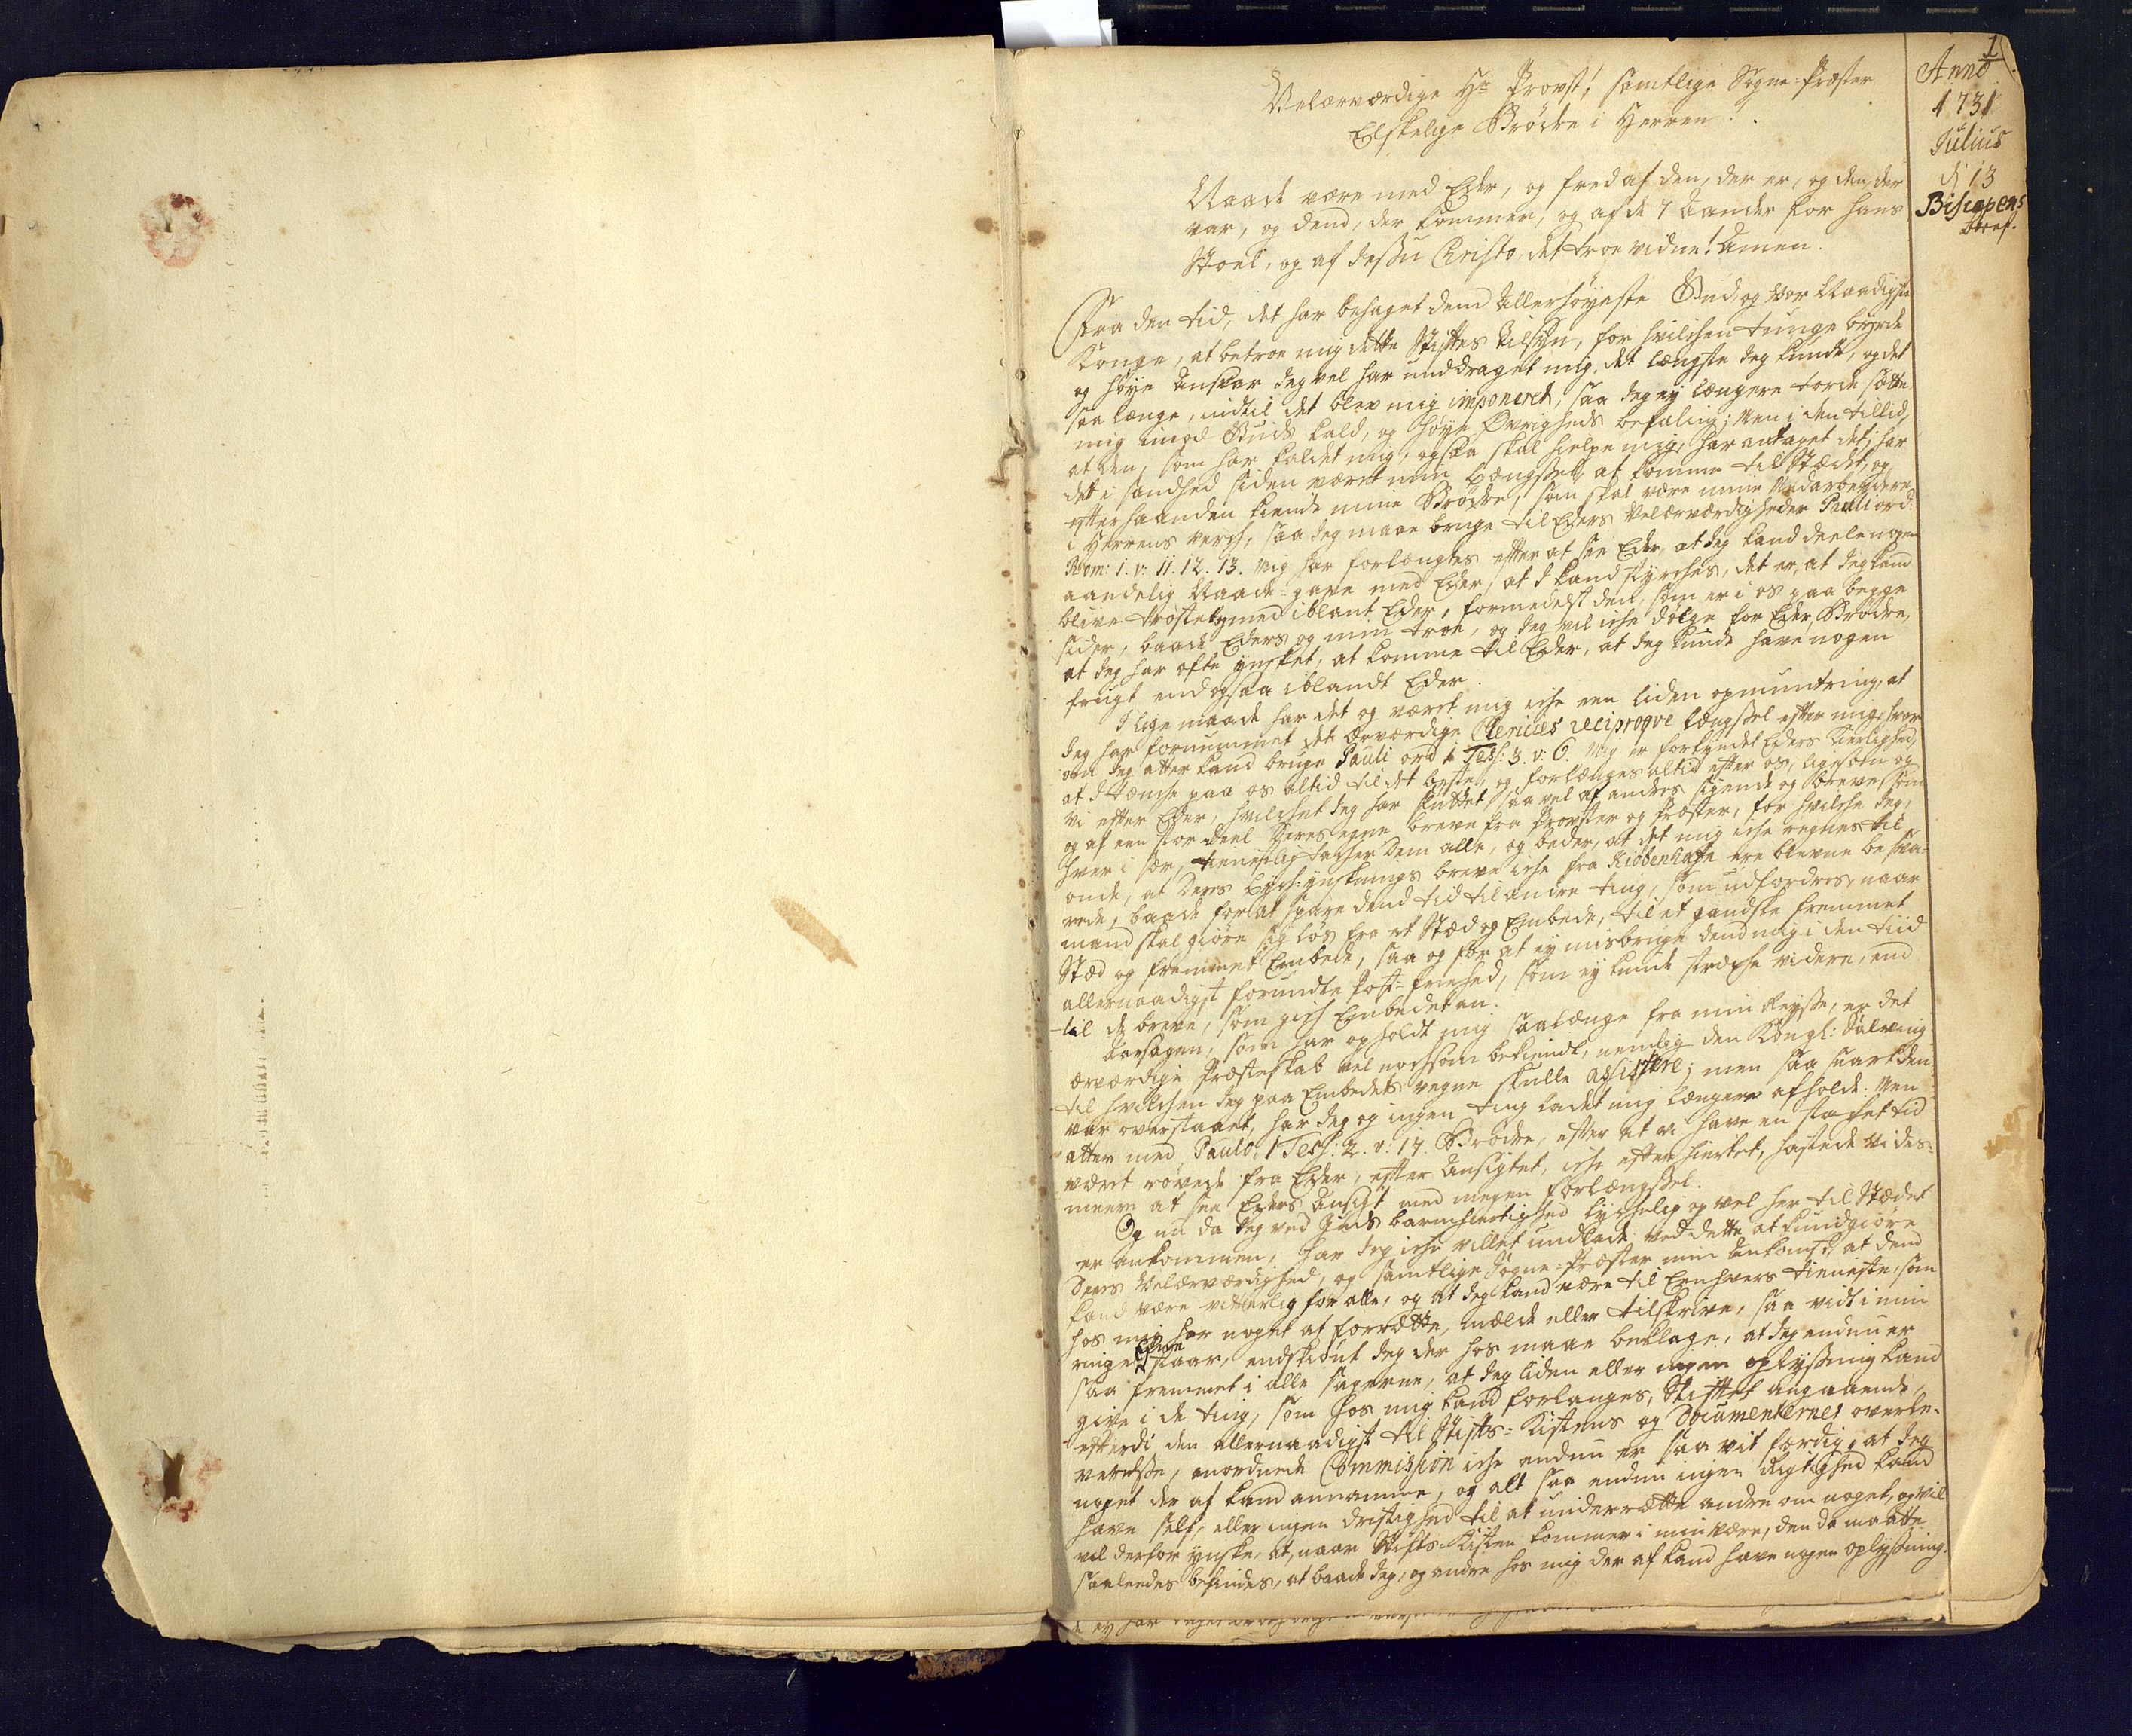 1
Anno
1731
Julius
d 13
Biscopens
bref.
Velærværdige Hr Provst, samtlige Sogne-Præster
Elskelige Brödre i Herren.
Naade være med Eder, og fred af den, der er, og den, der
var, og dend, der kommer, og af de 7 Aander for hans
Stoel, og af Jessu Christo, det troe vidne! Amen.
Fra den tid, det har behaget dend Allerhöyeste Gud og Vor Naadigste
Konge, at betroe mig dette Stiftes Tilsyn, for hvilchen tunge byrde
og höye Ansvar Jeg vel har unddraget mig det længste Jeg kunde, og det
saa længe, indtil det blev mig imponeret, saa Jeg ey længere torde sætte
mig imod Guds kald, og höye Övrigheds befaling; Men i den tillid,
at den, som har kaldet mig, ogsaa skal hielpe mig, har antaget det; har
det i sandhed siden været min Længsel, at komme til Stædet, og
efterhaanden kiende mine Brödre, som skal være mine Medarbeydere
i Herrens verch, saa Jeg maae bruge til Eders Velærværdigheder Pauli ord:
Rom: 1. v: 11. 12. 13. Mig har forlænges efter at see Eder, at Jeg kand deele nogen
aandelig Naade-gave med Eder, at I kand styrches, det er, at Jeg kand
blive tröstet med iblant Eder, formedelst den, som er i os paa begge
sider, baade Eders og min troe, og Jeg vil iche dölge for Eder, Brödre,
at Jeg har ofte ynsket, at komme til Eder, at Jeg kunde have nogen
frugt endogsaa iblandt Eder.
I lige maade har det og været mig iche een liden opmuntring, at
Jeg har fornummet det ærværdige Clericies reciproqve længsel efter mig, hvor
om Jeg atter kand bruge Pauli ord 1 Tess: 3. v: 6. Mig er forkyndet Eders kierlighed,
at I tænche paa os altid til det beste, og forlænges altid efter os, ligesom og
vi efter Eder, hvilchet Jeg har sluttet saa vel af andres sigende og breve, som
og af een stor deel Deres egne breve fra Provster og Præster, for hvilche Jeg,
hver i sær, tienstlig tacher Dem alle, og beder, at det mig iche regnes til
onde, at Deres Lych-ynsknings breve iche fra Kiöbenhafn ere blevne besva-
rede, baade for at spare dend tid til andre ting, som udfordres, naar
mand skal giöre sig lös fra et Stæd og Embede, til et gandske fremmet
Stæd og fremmet Embede, saa og for at ey misbruge dend mig i den tiid
allernaadigst forundte Post-friehed, som ey kunde strække videre, end
til de breve, som gich Embedet an.
Aarsagen, som har opholdt mig saalænge fra min Reysse, er det
ærværdige Præsteskab vel nochsom bekiendt, nemlig den Kongl: Salving
til hvilchen Jeg paa Embedets vegne skulle assistere; men saa snart den
var overstaaet, har Jeg og ingen ting ladet mig længere afholde. Men
atter med Paulo, 1 Tess: 2. v: 17. Brödre, efter at vi have en stachet tid
været rövede fra Eder, efter Ansigtet, iche efter hiertet, hastede vi des-
meere at see Eders Ansigt med megen forlængsel.
Og nu da Jeg ved Guds barmhiertighed lychelig og vel her til Stædet
er ankommen, har Jeg iche villet undlade ved dette at kundgiöre
Deres Velærværdighed, og samtlige Sogne-Præster min Ankomst, at dend
kand være vitterlig for alle, og at Jeg kand være til Eenhvers tieneste, som
hos mig har noget at forrætte, melde eller tilskrive, saa vidt i min
ringe Evne staar, endskiönt Jeg der hos maae beklage, at Jeg endnu er
saa fremmet i alle sagerne, at Jeg liden eller ingen oplysning kand
give i de ting, som hos mig kand forlanges, Stiftet angaaende,
efterdi den allernaadigst til Stifts-Kistens og Documenternes overle-
verelsse, anordnede Commission iche endnu er saa vit færdig, at Jeg
noget der af kand annamme, og alt saa endnu ingen Rigtighed kand
have self, eller ingen dristighed til at underrætte andre om noget, og vil
vel derfor ynske, at, naar Stifts-Kisten kommer i min være, den da maatte
saaledes befindes, at baade Jeg, og andre hos mig der af kand have nogen oplysning.